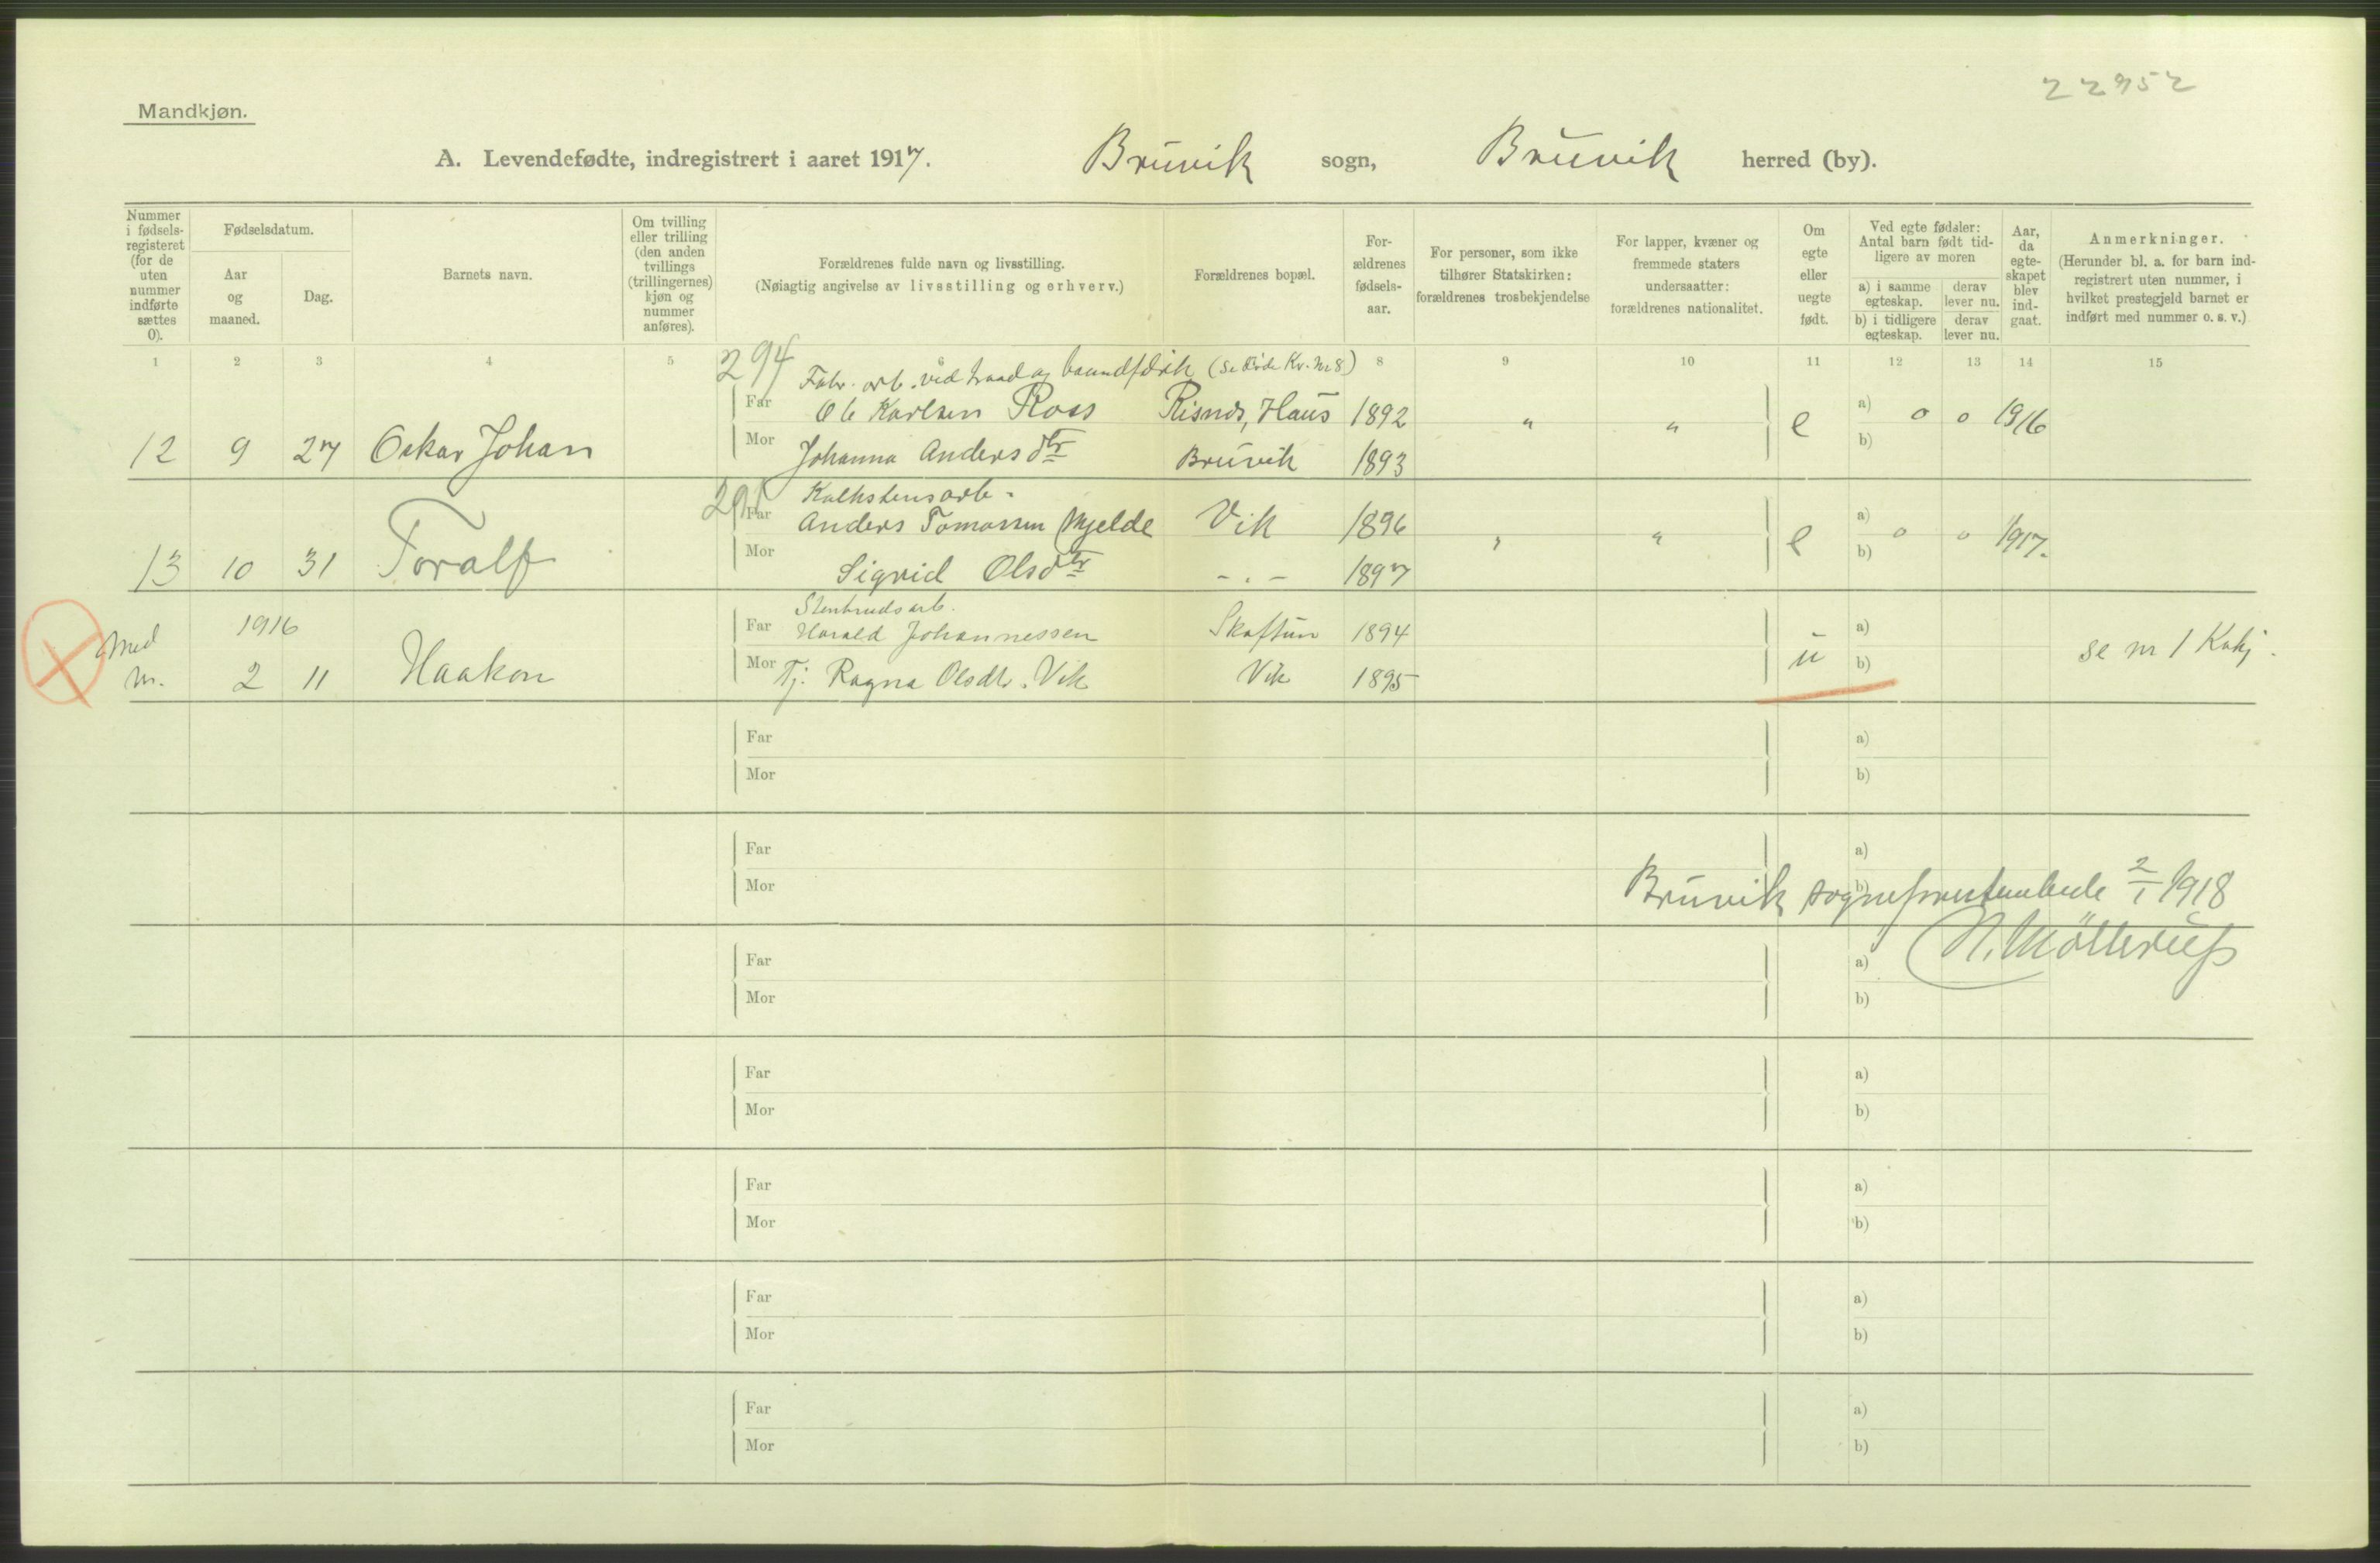 22952
Mandkjøn.
A. Levendefødte, indregistrert i aaret 1917. Bruvik sogn, Bruvik herred (by).
Nummer i fødselsregisteret (for de uten nummer indførte sættes 0).
Fødselsdatum.
Aar og maaned.
Dag.
Barnets navn.
Om tvilling eller trilling (den anden tvillings (trillingernes) kjøn og nummer anføres).
Forældrenes fulde navn og livsstilling.
(Nøiagtig angivelse av livsstilling og erhverv.)
Forældrenes bopæl.
Forældrenes fødselsaar.
For personer, som ikke tilhører Statskirken: forældrenes trosbekjendelse
For lapper, kvæner og fremmede staters undersaatter: forældrenes nationalitet.
Om egte eller uegte født.
Ved egte fødsler: Antal barn født tidligere av moren
a) i samme egteskap. derav lever nu.
b) i tidligere egteskap. derav lever nu.
Aar, da egteskapet blev indgaat.
Anmerkninger.
(Herunder bl. a. for barn indregistrert uten nummer, i hvilket prestegjeld barnet er indført med nummer o. s. v.)
1 2 3 4 5 6 8 9 10 11 12 13 14 15
294 Fabr. arb. ved traad og baandfabrik (se Døde Kv. nr 8)
Far Ole Karlsen Ross Risnes, Haus 1892 a) 0 0 1916
12 9 27 Oskar Johan Mor Johanna Andersdtr Bruvik 1893 " " e b)
291 Kalkstensarb.
Far Anders Tomassen Mjelde Vik 1896 a) 0 0 1917.
13 10 31 Toralf Mor Sigrid Olsdtr - . - 1897 " " e b)
Stenbrudsarb.
1916 Far Harald Johannessen Skaftun 1894 a)
Med nr. 2 11 Haakon Mor Tj. Ragna Olsdtr. Vik Vik 1895 u b) se nr 1 Kvkj.
Far a)
Mor b)
Far a)
Mor b)
Bruvik sogneprestembede 2/1 1918
N. Møllerup
Far a)
Mor b)
Far a)
Mor b)
Far a)
Mor b)
Far a)
Mor b)
Far a)
Mor b)